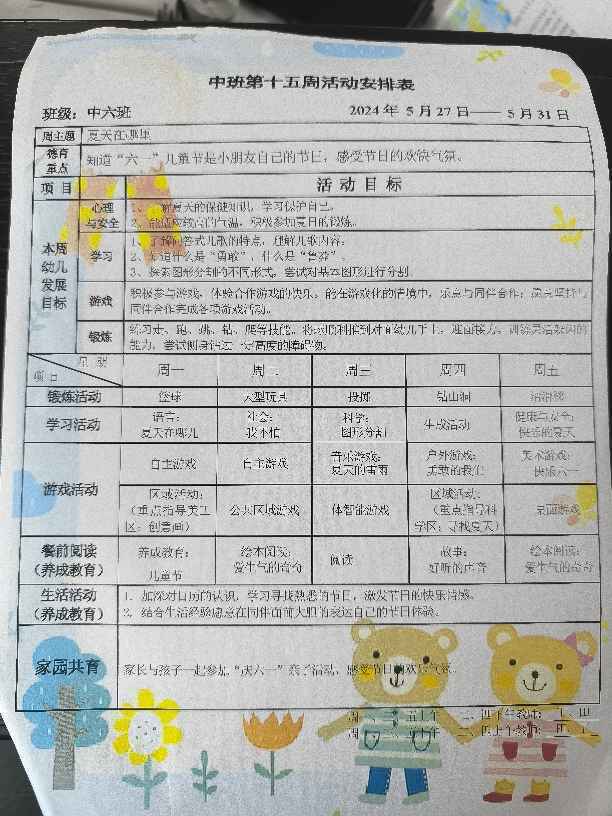 中班第十五周活动安排表
班级：中六班 2024年 5月27日—— 5月31日
周主题 夏天在哪里
德育重点 知道“六一”儿童节是小朋友自己的节日，感受节日的欢快气氛。
项目 活动目标
本周幼儿发展目标
心理与安全 1、 夏天的保健知识，学习保护自己。
2、能适应较高的气温，积极参加夏日的锻炼。
学习 1、了解问答式儿歌的特点，理解儿歌内容。
2、知道什么是“勇敢”，什么是“鲁莽”。
3、探索图形分割的不同形式，尝试对基本图形进行分割。
游戏 积极参与游戏，体验合作游戏的快乐，能在游戏化的情境中，乐意与同伴合作，
同伴合作完成各项游戏活动。
锻炼 练习走、跑、跳、钻、爬等技能。
能力，尝试侧身钻过 高度的障碍物。
星期 项目 周一 周二 周三 周四 周五
锻炼活动 篮球 大型玩具 投掷 钻山洞
学习活动 语言：夏天在哪儿 社会：我不怕 科学：图形分割 生成活动 健康与安全：快乐的夏天
游戏活动 自主游戏 自主游戏 音乐游戏：夏天的雷雨 户外游戏：勇敢的我们 美术游戏：快乐六一
区域活动：（重点指导美工区：创意画） 公共区域游戏 体智能游戏 区域活动：（重点指导科学区：寻找夏天） 桌面游戏
餐前阅读（养成教育） 养成教育：儿童节 绘本阅读：爱生气的奇奇 阅读 故事：好听的声音 绘本阅读：爱生气的奇奇
生活活动（养成教育） 1、加深对日历的认识，学习寻找熟悉的节日，激发节日的快乐情感。
2、结合生活经验愿意在同伴面前大胆的表达自己的节日体验。
家园共育 家长与孩子一起参加“庆六一”亲子活动，感受节日的欢乐气氛。